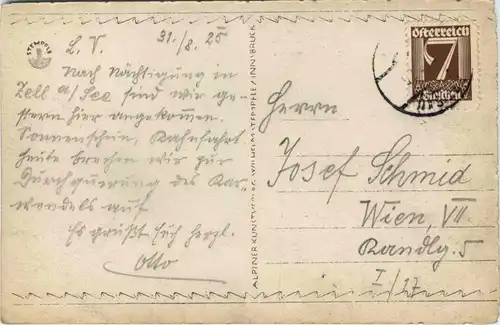 STEMPFLE
L. V. 31./8. 25
Nach Nächtigung in
Zell a/ See sind wir ge-
stern hier angekommen.
Sonnenschein, Kahnfahrt
heute brechen wir zur
Durchquerung des Kar-
wendels auf
Es grüßt Euch herzl.
Otto
ALPINER KUNSTVERLAG WILHELM STEMPFLE / INNSBRUCK
Österreich
7
Groschen
Herrn
Josef Schmid
Wien, VII
Kandlg. 5
I/27